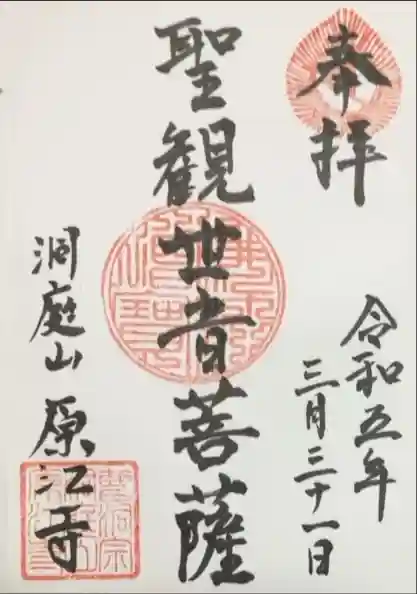 奉拝
令和五年
三月三十一日
聖観世音菩薩
洞庭山 原江寺